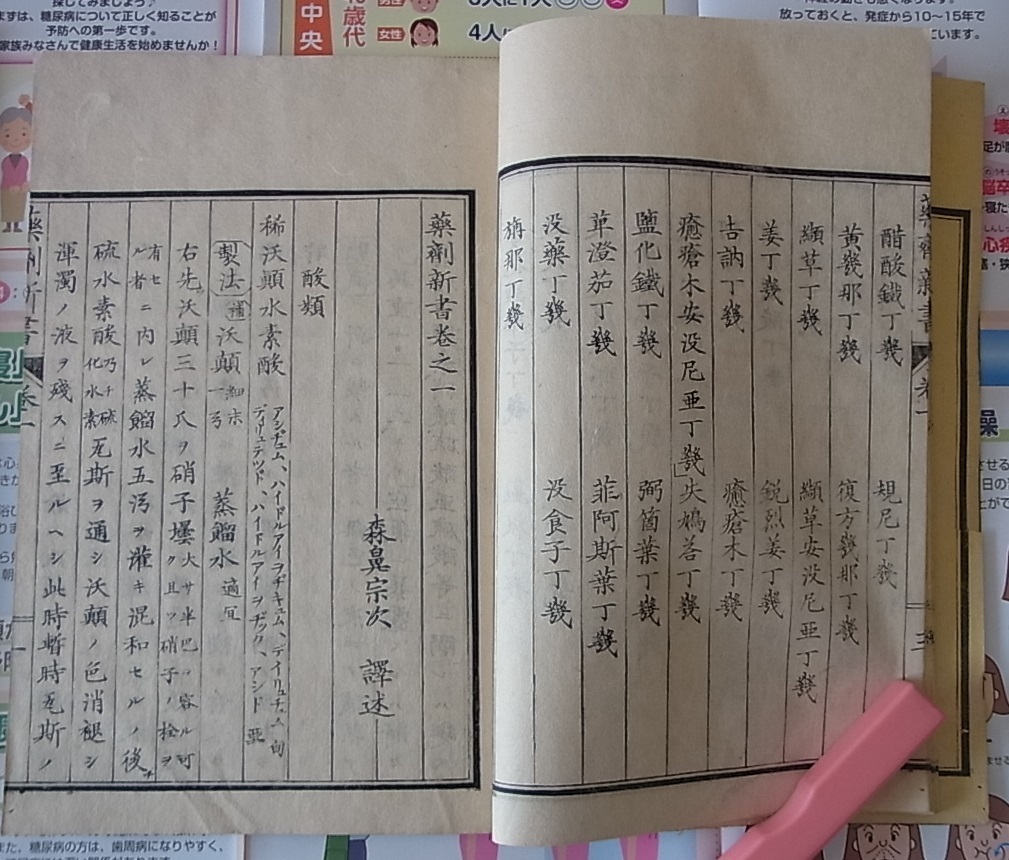 醋酸鐵丁幾
規尼丁幾
黃幾那丁幾
復方幾那丁幾
纈草丁幾
纈草安没尼亜丁幾
姜丁幾
鋭烈姜丁幾
吉訥丁幾
癒瘡木丁幾
癒瘡木安没尼亜丁幾
失鳩荅丁幾
鹽化鐵丁幾
弼箇葉丁幾
蓽澄茄丁幾
菲阿斯葉丁幾
没藥丁幾
没食子丁幾
旃那丁幾
藥劑新書卷之一
森晃宗次 譯述
酸類
稀沃顛水素酸
アシヂュム、ハイドルアイヲヂキュム、デイリュチュム
ディリュテッド、ハイドルアイヲヂック、アシド
製法
沃顛
蒸餾水 適宜
右先沃顛三十瓦ヲ硝子壜
ル者ニ内レ蒸餾水五
ヲ灌キ混和セルノ後
硫水素酸
瓦斯ヲ通シ沃顛ノ色消褪シ
渾濁ノ液ヲ殘スニ至ルヘシ此時暫時瓦斯ノ
探してみましょう♪
まずは、糖尿病について正しく知ることが
予防への第一歩です。
家族みなさんで健康生活を始めませんか！
中央
歳代
男性
女性
4人
放っておくと、発症から10〜15年で
います。
また、糖尿病の方は、歯周病になりやすく、